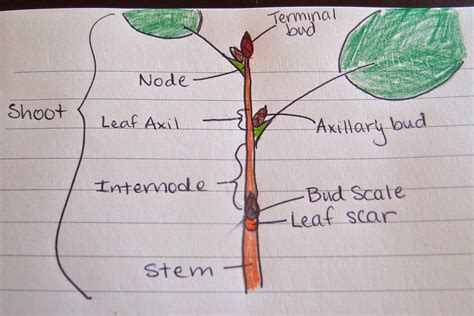 Terminal
bud
Node
Shoot
Leaf Axil
Axillary bud
Internode
Bud Scale
Leaf scar
Stem